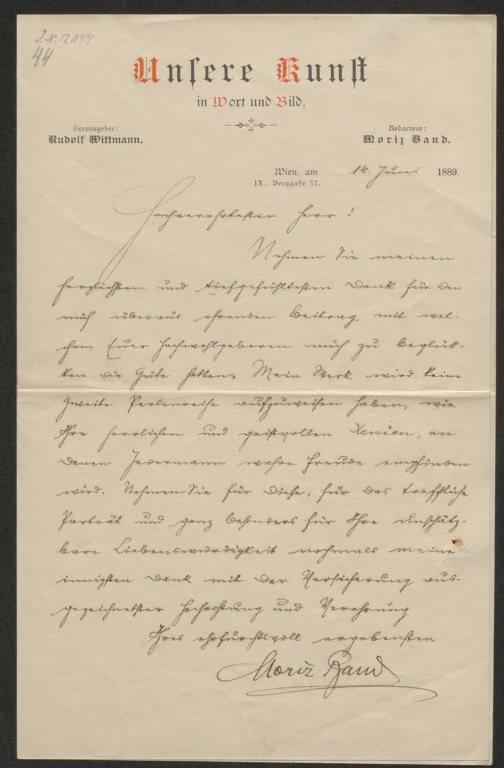 J.N. 12044
44
Unsere Kunst
in Wort und Bild.
Herausgeber:
Rudolf Wittmann.
Redacteur:
Moriz Band.
Wien, am 14. Juni 1889.
IX., Berggasse 37.
Hochverehrtester Herr!
Nehmen Sie meinen
herzlichsten und tiefgefühltesten Dank für den
mich überaus ehrenden Beitrag, mit wel-
chem Euer Hochwohlgeboren mich zu beglük-
ken die Güte hatten. Mein Werk wird keine
zweite Perlenreihe aufzuweisen haben, wie
Ihre herrlichen und geistvollen Xenien, an
denen Jedermann wahre Freude empfinden
wird. Nehmen Sie für diese, für das treffliche
Porträt und ganz besonders für Ihre unschätz-
bare Liebenswürdigkeit nochmals meine
innigsten Dank mit der Versicherung aus-
gezeichnetster Hochachtung und Verehrung
Ihres ehrfurchtsvoll ergebensten
Moriz Band